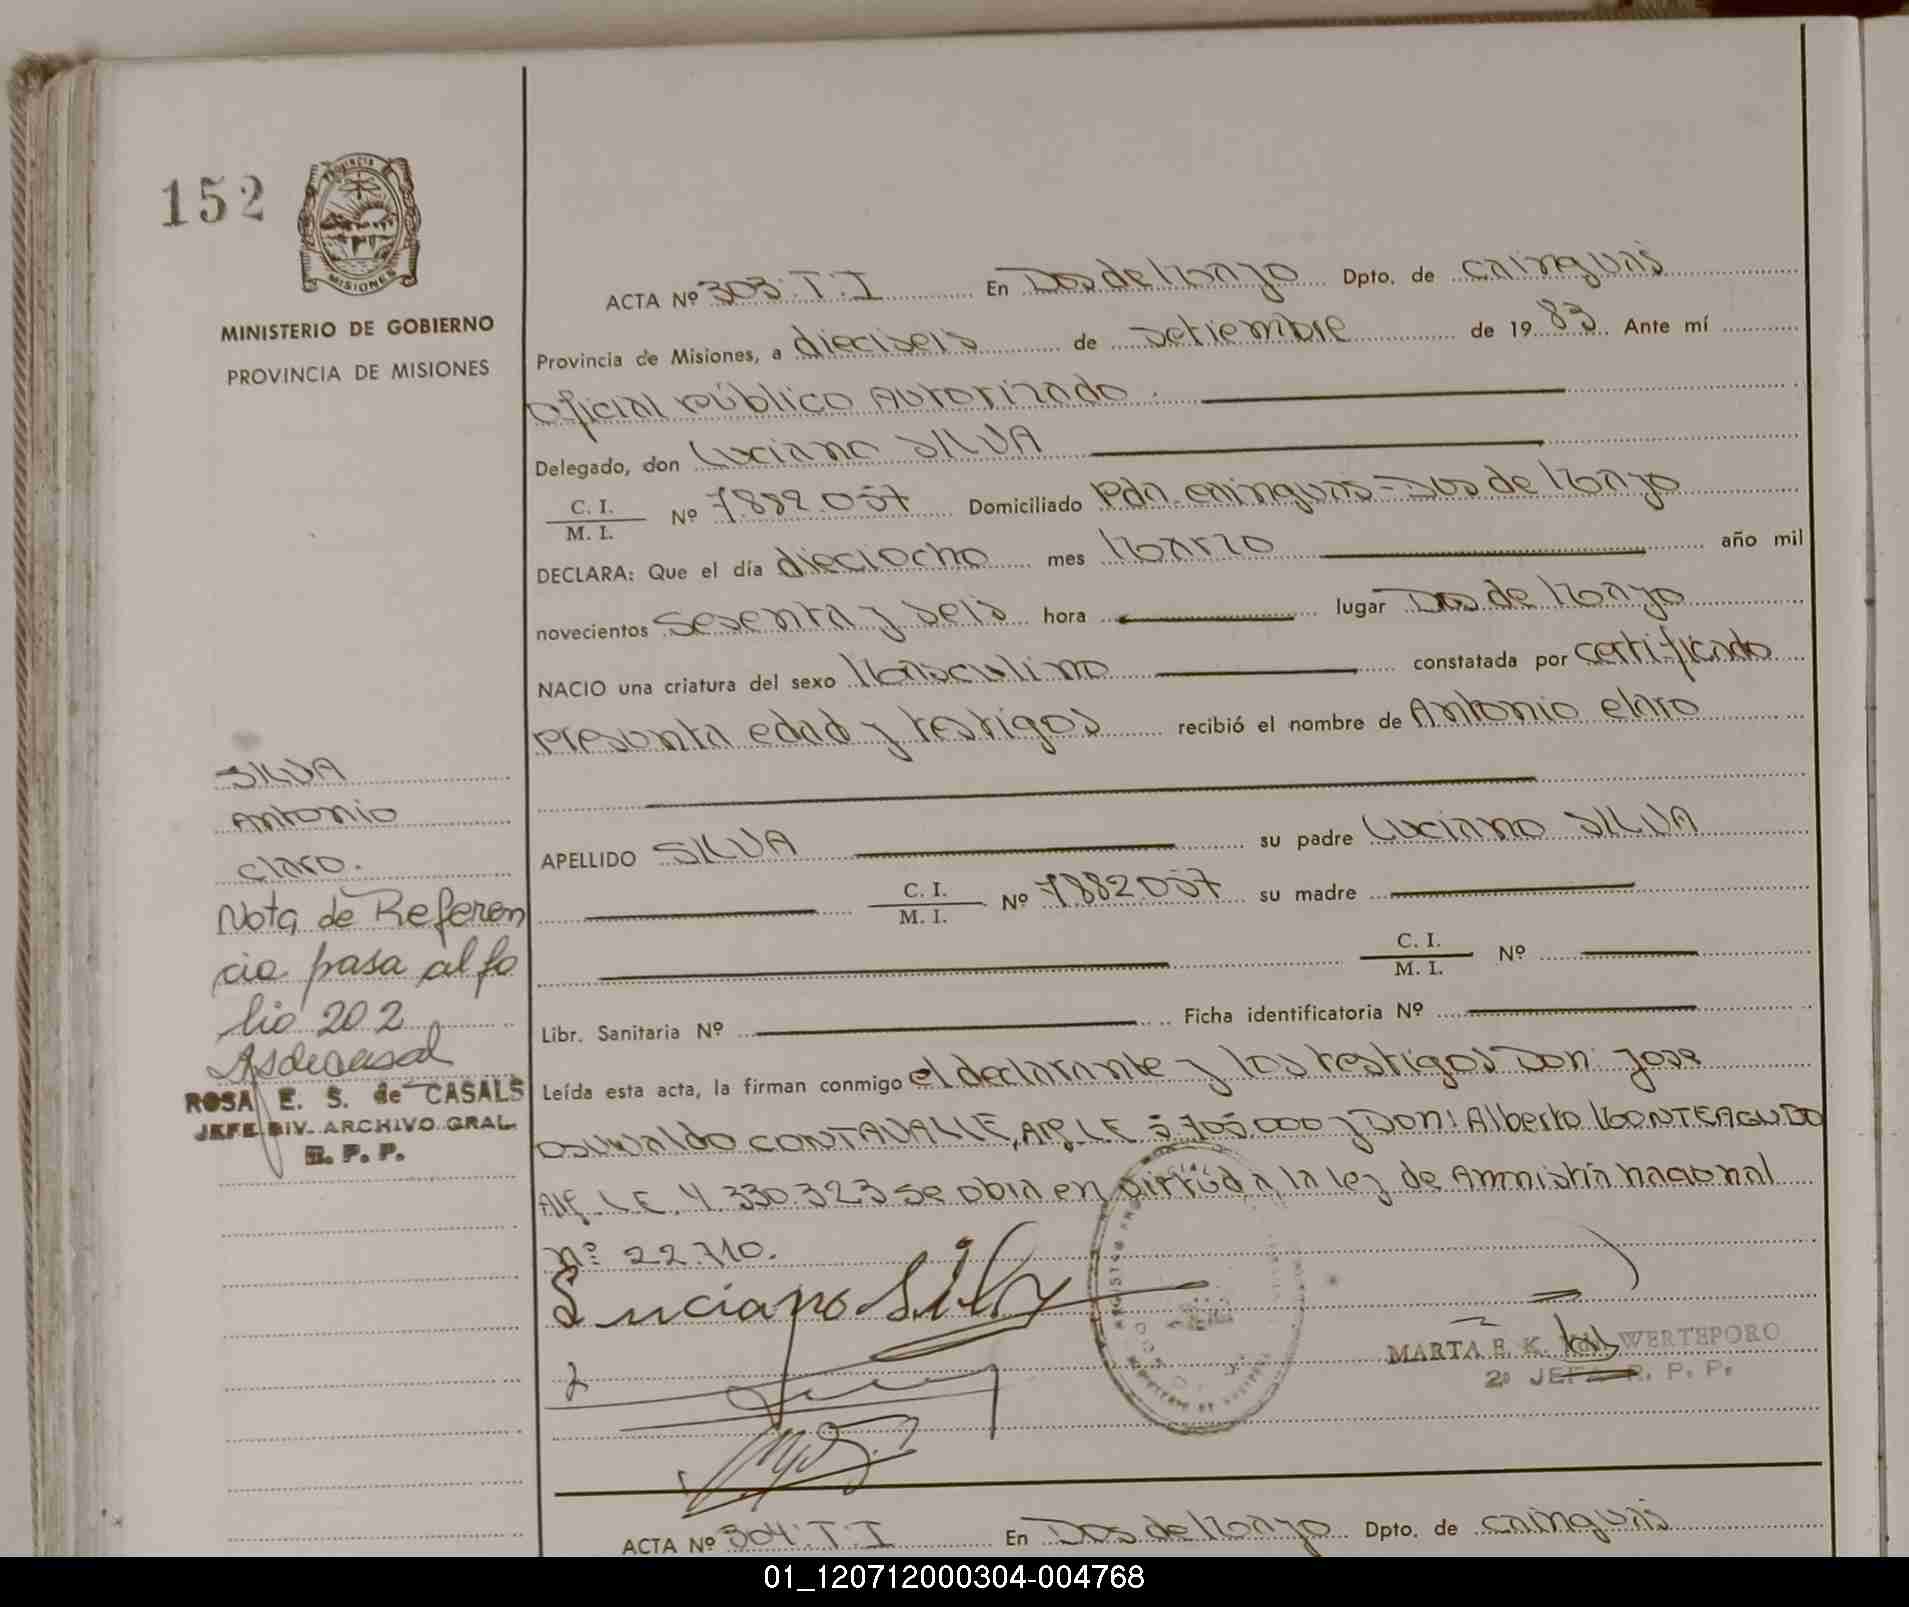 152
PROVINCIA
MISIONES
MINISTERIO DE GOBIERNO
PROVINCIA DE MISIONES
ACTA Nº 303. T. I En Dos de Mayo Dpto. de Cainguas
Provincia de Misiones, a dieciseis de setiembre de 1983. Ante mí
Oficial Público Autorizado.
Delegado, don Luciano SILVA
C. I.
M. I. Nº 7.882.057 Domiciliado Pda. Cainguas - Dos de Mayo
DECLARA: Que el día dieciocho mes Marzo año mil
novecientos sesenta y seis hora lugar Dos de Mayo
NACIO una criatura del sexo Masculino constatada por certificado
presunta edad y testigos recibió el nombre de Antonio Claro
APELLIDO SILVA su padre Luciano SILVA
C. I.
M. I. Nº 7.882.057 su madre
C. I.
M. I. Nº
Libr. Sanitaria Nº Ficha identificatoria Nº
Leída esta acta, la firman conmigo el declarante y los testigos Don: Jose
Osvaldo CONTAVALLE, Arg. L.E 5.705.000 y Don: Alberto MONTEAGUDO
Arg. L.E. 4.330.323 se obra en virtud a la ley de Amnistia nacional
nº 22.710.
Luciano Silva
MARTA E. K. WERTEPORO
2º JEFA R. P. P.
SILVA
Antonio
Claro.
Nota de Referen
cia pasa al fo
lio 202
ROSA E. S. de CASALS
JEFE DIV. ARCHIVO GRAL.
R. P. P.
ACTA Nº 304. T. I En Dos de Mayo Dpto. de Cainguas
01_120712000304-004768